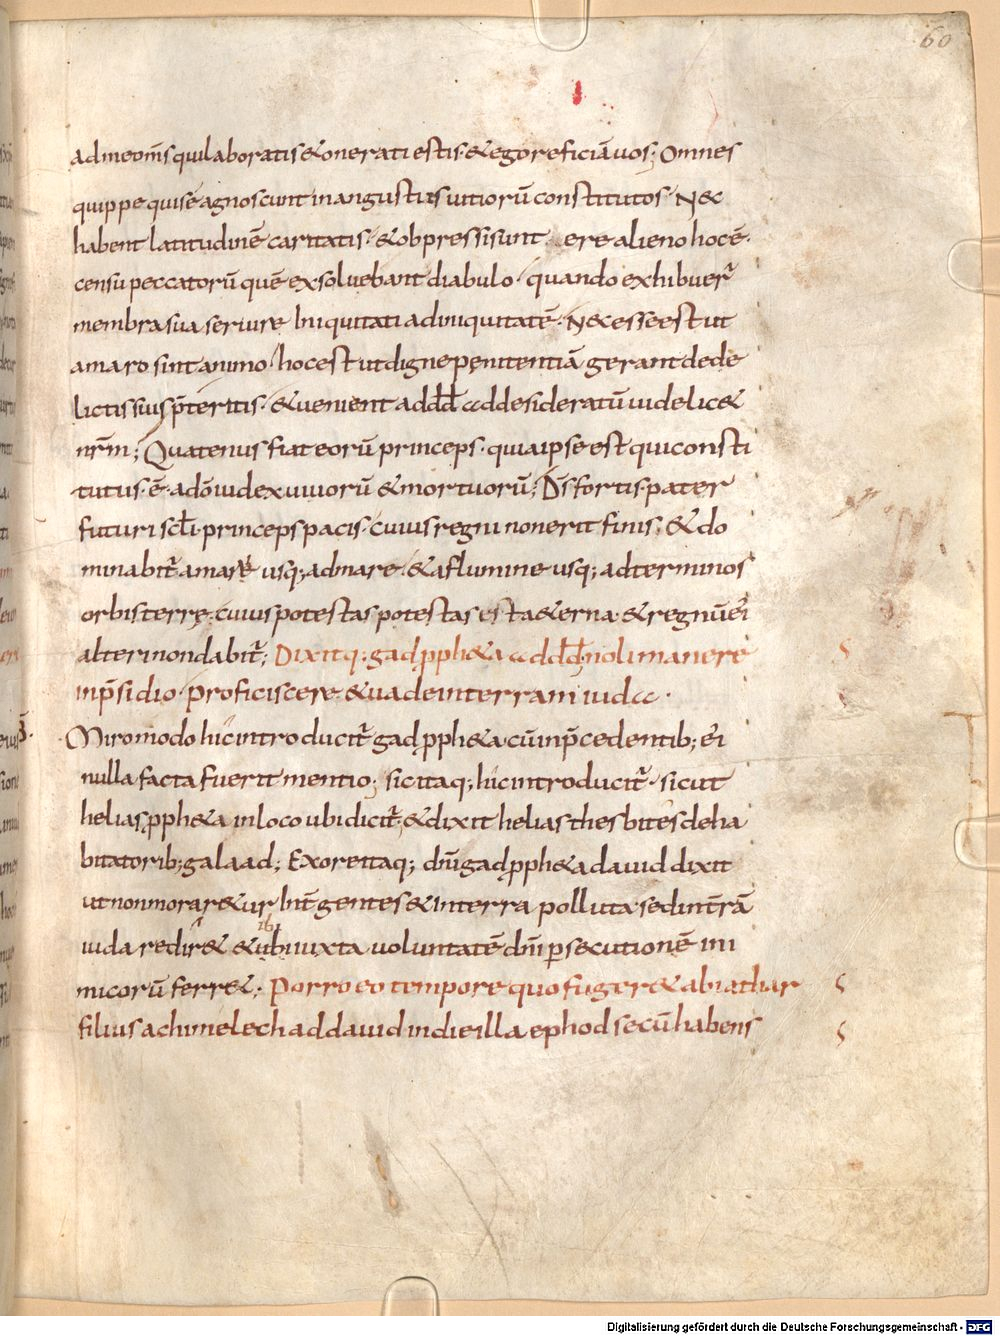 60
ad me om̅s qui laboratis & onerati estis· & ego reficiā uos; Omnes
quippe qui se agnoscunt in angustiis uitiorū constitutos· Nec
habent latitudinē caritatis· & obpressi sunt ere alieno hoc ē·
censu peccatorū quē exsoluebant diabulo· quando exhibuer̄
membra sua seruire Iniquitati ad iniquitatē· Necesse est ut
amaro sint animo· hoc est ut digne penitentiā gerant de de
lictis suis p̄teritis· & uenient ad dd̄ ad desideratū uidelic&
nr̄m; Quatenus fiat eorū princeps· quia ipse est qui consti
tutus· ē· a dō iudex uiuorū & mortuorū; Ds̄ fortis· pater
futuri scl̄i· princeps pacis· cuius regni non erit finis; & do
minabit̄· a mare usq; ad mare· & a flumine usq; ad terminos
orbis terrę· cuius potestas potestas est a&erna· & regnū ei̅
alteri non dabit̄; Dixitq· gad ꝓph&a ad dd̄· noli manere
in p̄sidio· Proficiscere & uade in terram iuda·
Miro modo hic introducit̄ gad ꝓph&a cū in p̄cedentib; ei̅
nulla facta fuerit mentio; sic itaq; hic introducit̄· sicut
helias ꝓph&a in loco ubi dicit̄; & dixit helias thesbites de ha
bitatorib; galaad; Exore itaq; dn̄i gad ꝓph&a dauid dixit
ut non morar&ur Int̄ gentes & in terra polluta· sed in t̄rā
iuda redir& & ibi iuxta uoluntatē dn̄i ꝑsecutionē ini
micorū ferr&; Porro eo tempore quo fuger& abiathar
filius achimelech ad dauid in die illa ephod secū habens
Digitalisierung gefördert durch die Deutsche Forschungsgemeinschaft - DFG